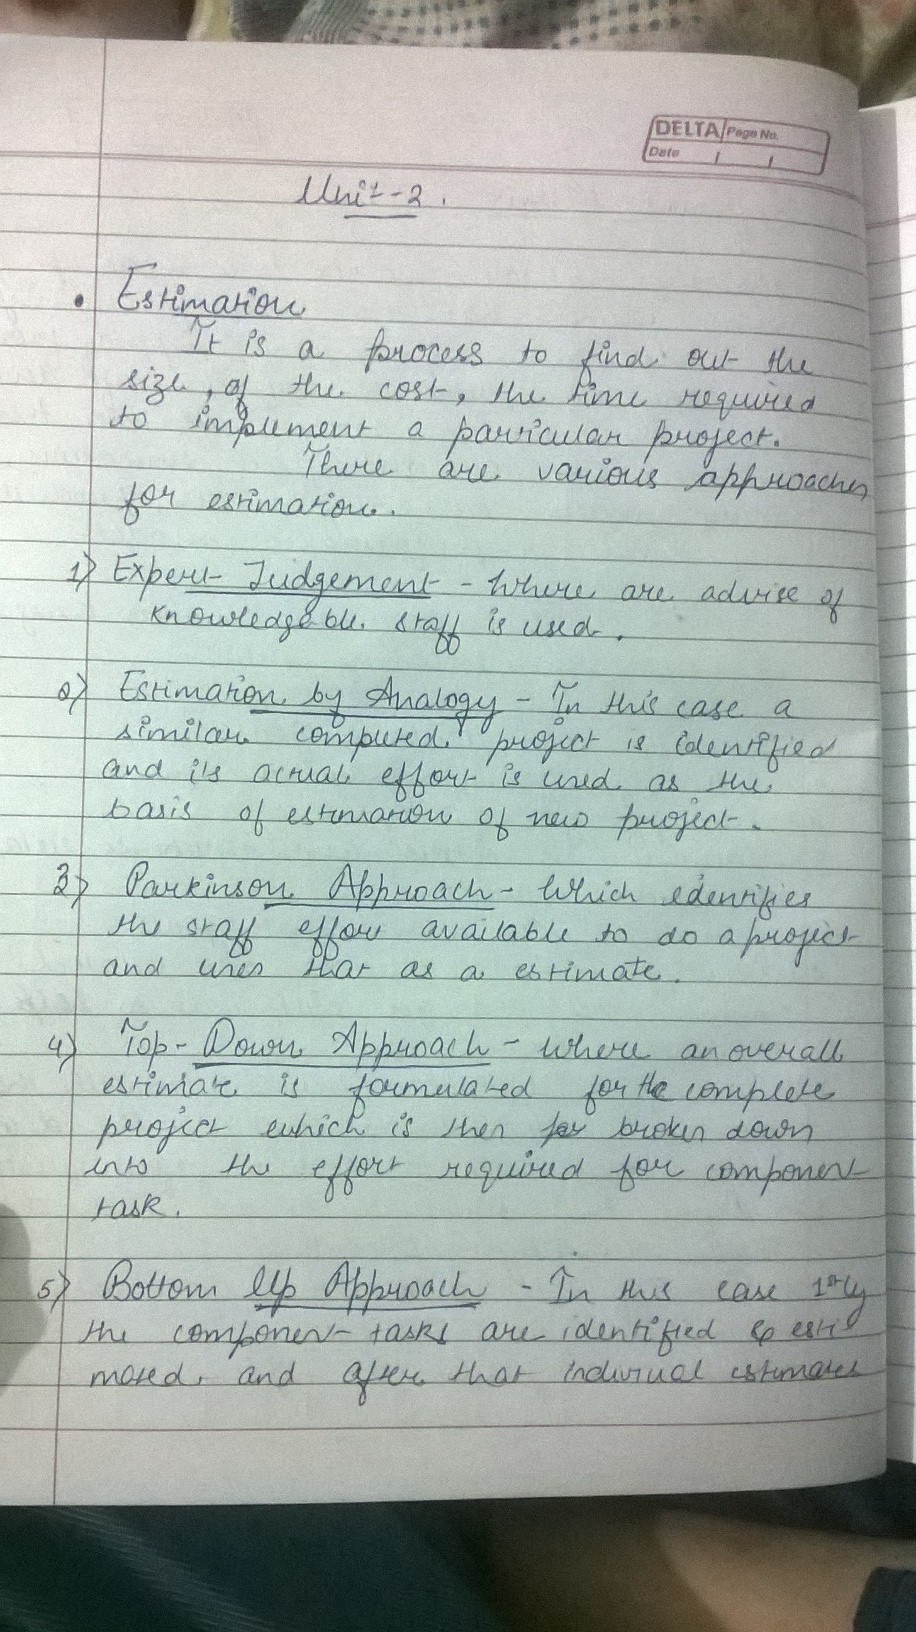 DELTA Page No.
Date / /
Unit-2.
• Estimation
It is a process to find out the
size, of the cost, the time required
to implement a particular project.
There are various approaches
for estimation.
1) Expert Judgement - Where are advise of
knowledgeable staff is used.
2) Estimation by Analogy - In this case a
similar computed project is identified
and its actual effort is used as the
basis of estimation of new project.
3) Parkinson Approach - Which identifies
the staff effort available to do a project
and uses that as a estimate.
4) Top-Down Approach - where an overall
estimate is formulated for the complete
project which is then broken down
into the effort required for component
task.
5) Bottom Up Approach - In this case 1stly
the component tasks are identified & esti
mated, and after that indiviual estimates